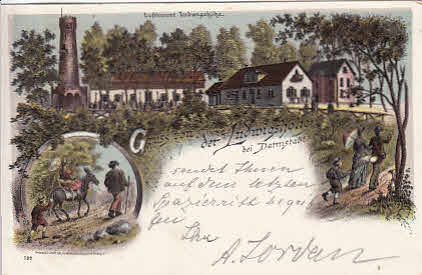 Luftkurort Ludwigshöhe.
Gruss von der Ludwigshöhe
bei Darmstadt
sendet Ihnen
auf dem letzten
Spazierritt begrif
fen
Ihr
A. Jordan
198